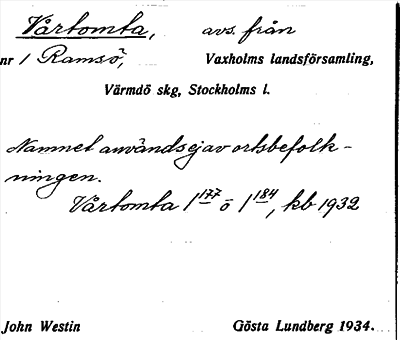 Vårtomta, avs. från
nr 1 Ramsö, Vaxholms landsförsamling,
Värmdö skg, Stockholms l.
Namnet användsejav ortsbefolk-
ningen.
Vårtomta 1177 ö 1184, kb 1932
John Westin Gösta Lundberg 1934.